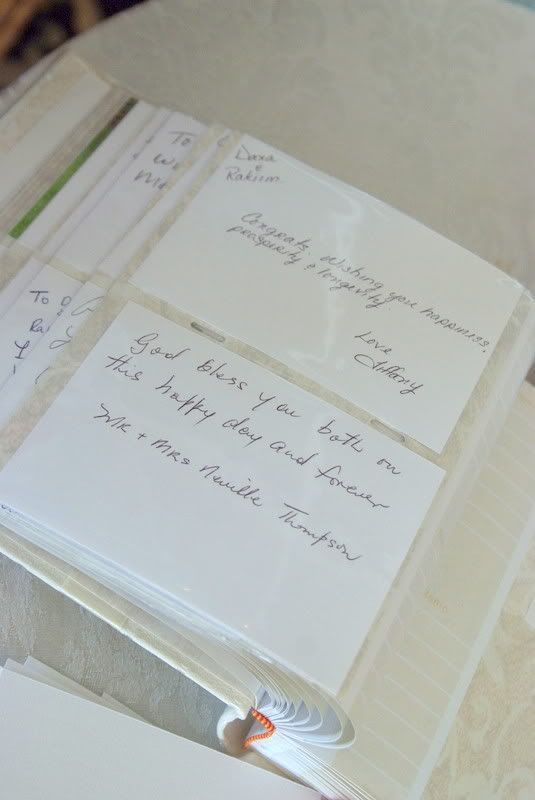 To
Daxa
&
Rakiem
Congrats. Wishing you happiness,
prosperity & longevity
Love
Tiffany
To
Ra
God bless you both on
this happy day and forever
Mr + Mrs Neville Thompson